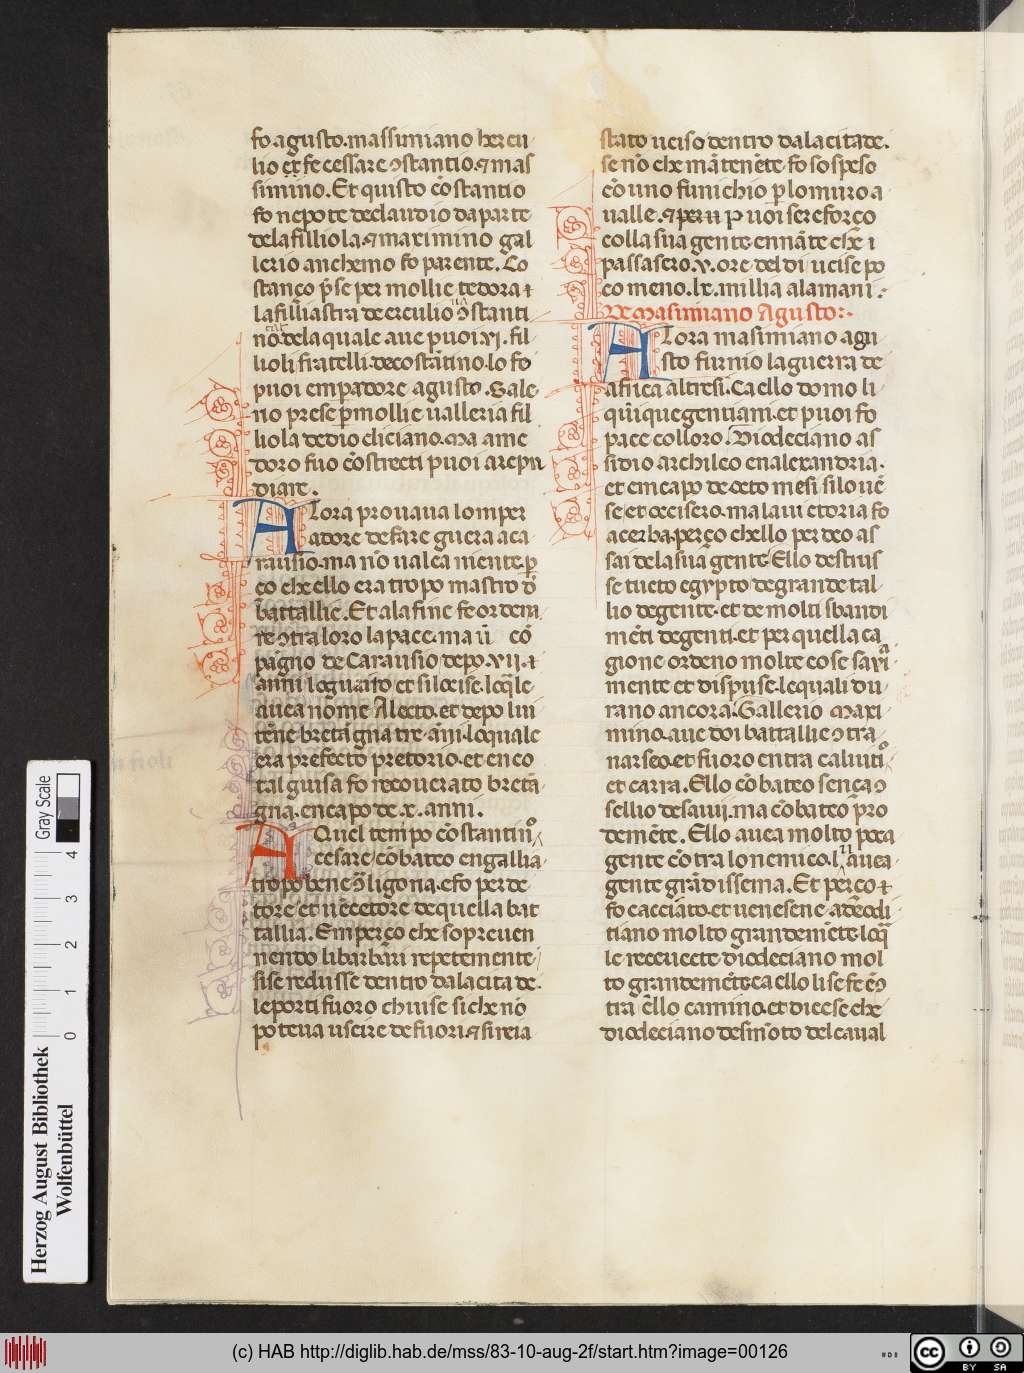 fo agusto. massimiano hercu
lio et fe cessare ↄstantio. ⁊ mas
simino. Et quisto cōstantio
fo nepote declaudio da parte
delafilliola. ⁊ maximino gal
lerio anchemo fo parente. Co
stanço p̄se per mollie tedora ⁊
la filliastra de erculio ↄstanti
no. dela quale aue puoi .vi. fil
lioli fratelli decostātino. lo fo
puoi empadore agusto. Gale
rio prese p̄ mollie ualleria fil
liola dedio cliciano. Ma ame
doro fuo cōstrecti puoi arepu
diare.
Alora prouaua lomper
adore de fare guera a ca
rausio. ma nō ualea niente. p̄
ço che ello era tropo mastro d̄
battallie. Et ala fine fe ordena
re ↄtra loro la pace. ma ū cō
pagno de Carausio depo .vii. ⁊
anni lo guaito et si locise. loq̄le
auea nome Alecto. et depo lui
tēne bretagna tre āni. loquale
era prefecto pretorio. et en co
tal guisa fo recouerato bretā
gna. encapo de .x. anni.
A Quel tempo cōstantino
cesare cōbateo en gallia
tropo bene ↄ ligona. e fo perde
tore et uēcetore de quella bat
tallia. Emperço che sopreuen
nendo li barbari repetemente
si se redusse dentro da la cita de.
le porti fuoro chiuse si che nō
poteua uscire de fuori. ⁊ si reia
stato uciso dentro da la citade.
se nō che mātenēte fo sospeso
cō uno funichio p̄ lo muro a
ualle. ⁊ per u puoi se reforço
colla sua gente. ennāte che i
passasero .v. ore del di ucise po
co meno .lx. millia alamani.
De Masimiano Agusto.
Alora masimiano agu
sto furnio la guerra de
africa altresi. Ca ello domo li
quiquegentiani. et puoi fo
pace colloro. Diocleciano as
sidio archileo en alexandria.
et em capo de octo mesi si lo uē
se et occisero. ma la uictoria fo
acerba. perço chello perdeo as
sai dela sua gente. Ello destrus
se tucto egypto de grande tal
lio de gente. et de molti sbandi
mēti de genti. et per quella ca
gione ordeno molte cose saui
mente et dispuse. le quali du
rano ancora. Gallerio maxi
mino. aue doi battallie ↄtra
narseo. et fuoro entra caliuico
et carra. Ello cōbateo sença ↄ
sellio desauii. ma cōbateo pro
demēte. Ello auea molto poca
gente cōtra lo nemico. lui auea
gente grādissema. Et perço ⁊
fo cacciato. et uenesene a deocli
tiano molto grandemēte. loq̄
le receuecte. diocleciano mol
to grandemēte. ca ello li se fe ēↄ
tra ello camino. et dicese che
diocleciano desmōto del caual
Herzog August Bibliothek
Wolfenbüttel
Gray Scale
0 1 2 3 4
(c) HAB http://diglib.hab.de/mss/83-10-aug-2f/start.htm?image=00126
cc
BY SA